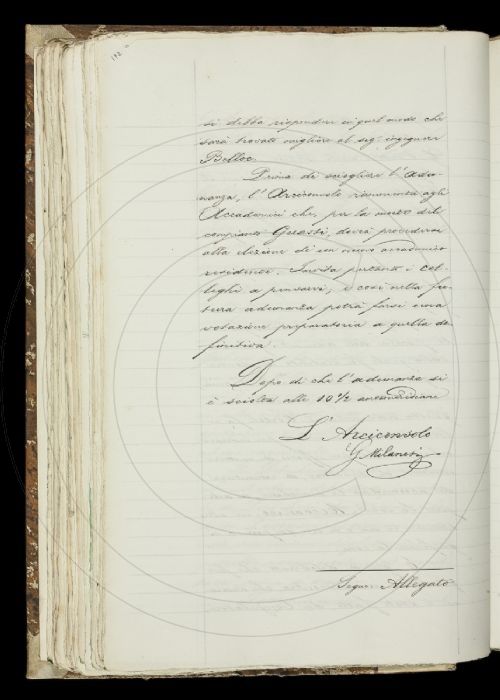 192
si debba rispondere in quel modo che
sarà trovato migliore al seg. ingegnere
Belloc.
Prima di sciogliere l'adu-
nanza, l'Arciconsolo rammenta agli
Accademici che, per la morte del
compianto Guasti, dovrà procedersi
alla elezione di un nuovo accademico
residente. Invita pertanto i col-
leghi a pensarvi, e così nella fu-
tura adunanza potrà farsi una
votazione preparatoria a quella de-
finitiva.
Dopo di che l'adunanza si
è sciolta alle 10 1/2 antimeridiane
L'Arciconsolo
G Milanesi
Segue Allegato